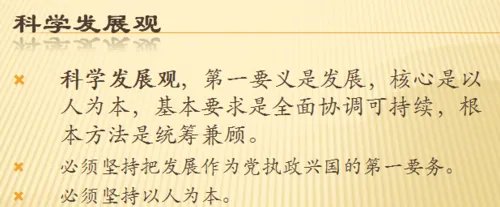 科学发展观
科学发展观，第一要义是发展，核心是以
人为本，基本要求是全面协调可持续，根
本方法是统筹兼顾。
必须坚持把发展作为党执政兴国的第一要务。
必须坚持以人为本。